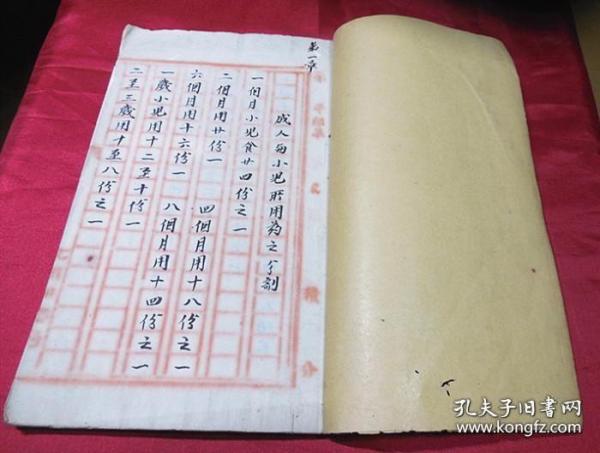 第一章
成人每小児所用為之分剖
一個月小児食廿四份之一
二個月用廿份一 四個月用十八份之一
六個月用十六份一 八個月用十四份之一
一歲小児用十二至十份一
二至三歲用十至八份之一
孔夫子旧書网
www.kongfz.com